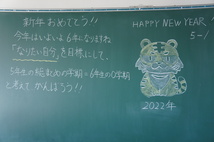 新年 おめでとう!!
今年はいよいよ6年になりますね
「なりたい自分」を目標にして、
5年生の総まとめの学期=6年生の0学期
と考えて がんばろう!!
HAPPY NEW YEAR!
5-1
2022年